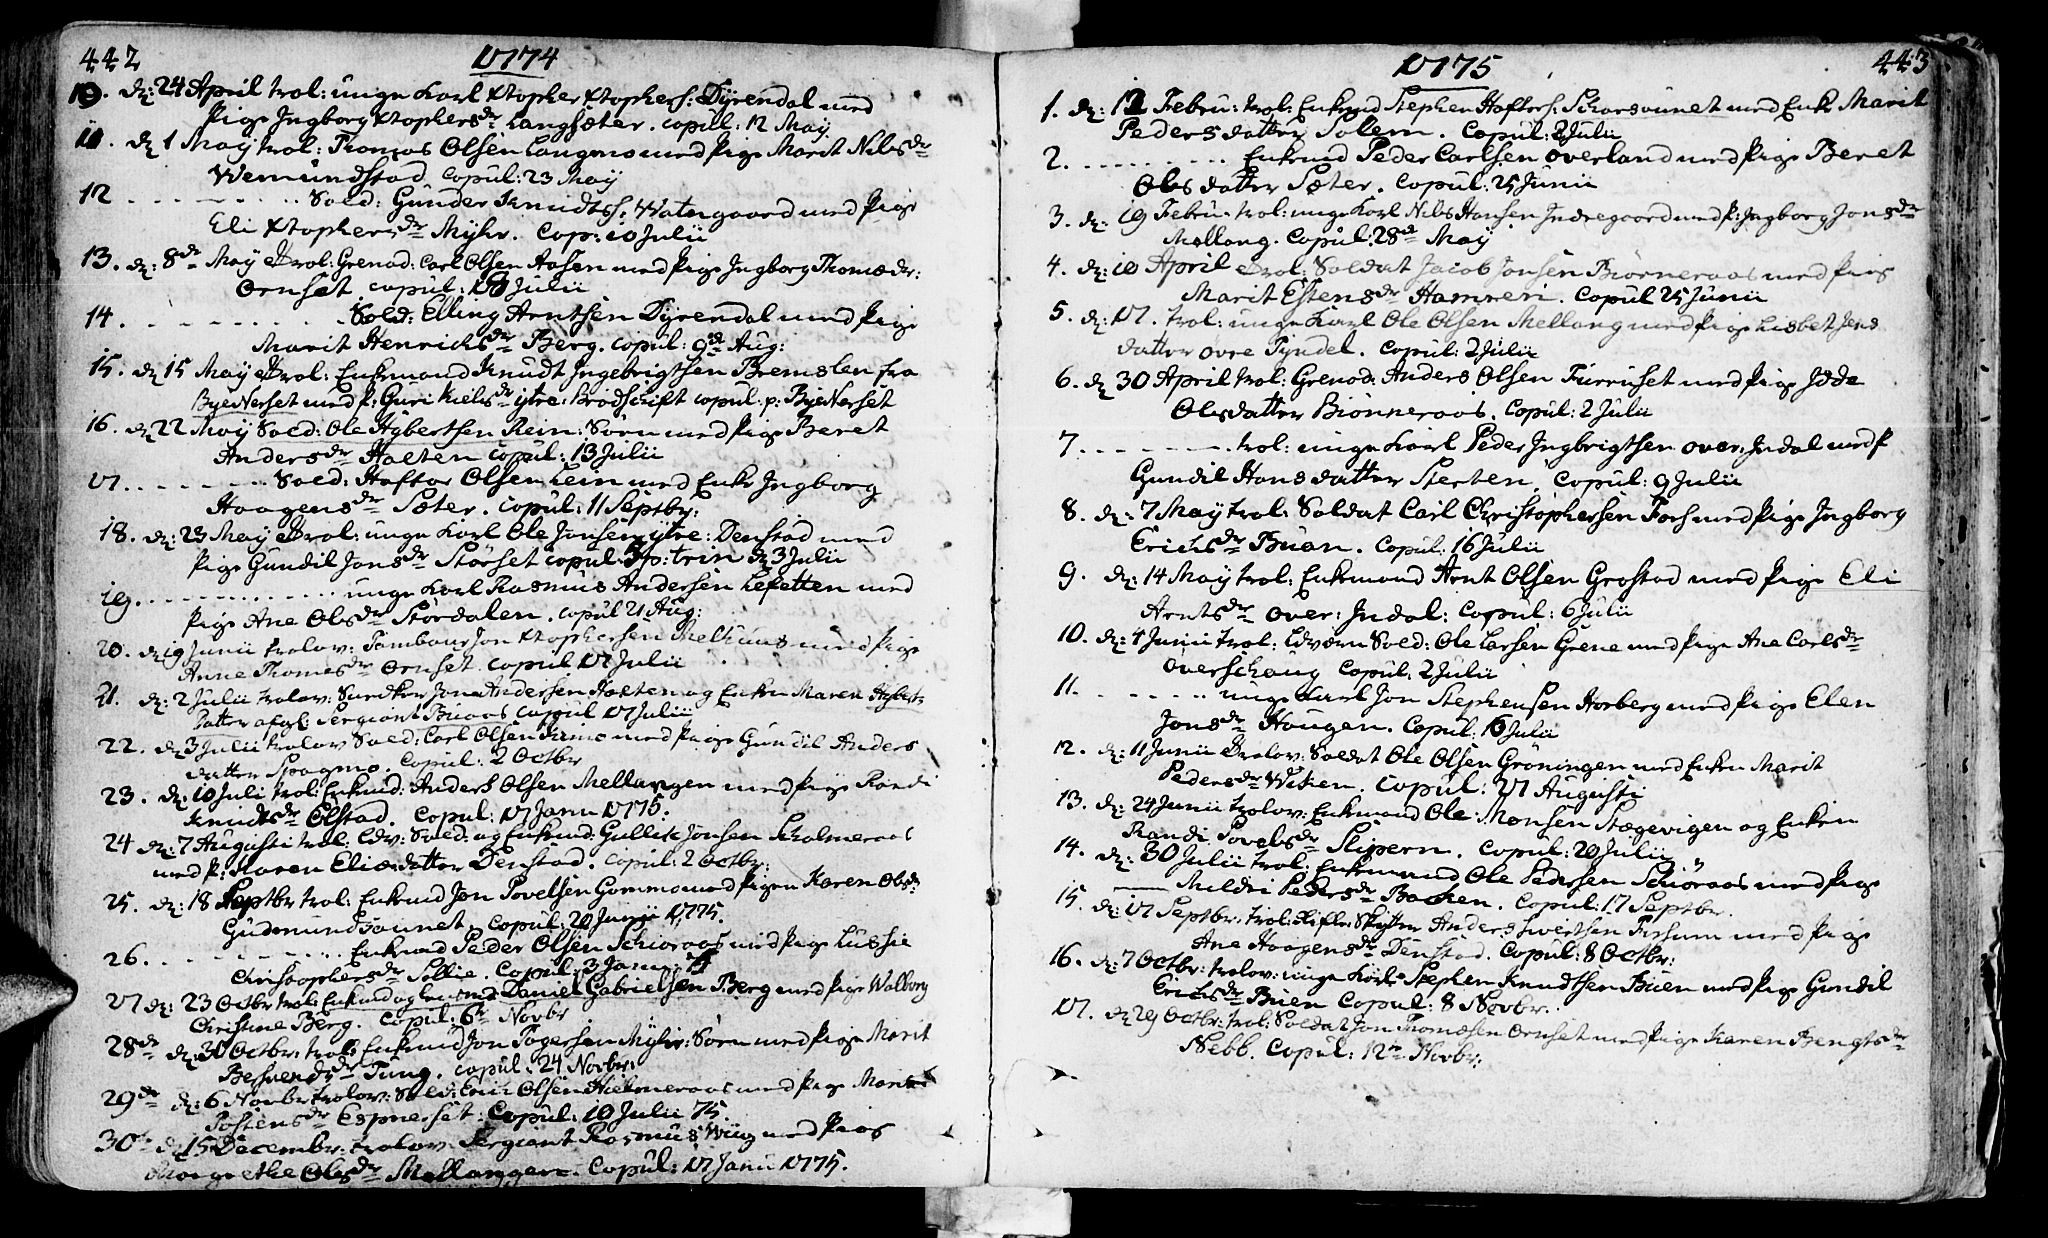 442
1774
10. d: 24 April trol: unge Karl Xtopher Xtophers: Dyrendal med
Pige Ingborg Xtophersdr Langsæter. copul: 12 May
11. d 1 May trol: Thomas Olsen Langmo med Pige Marit Nilsdr
Wemundstad copul: 23 May
12 - - - - - - Sold: Gunder Knudtss: Watngaard med Pige
Eli Xtophersdr Myhr. Cop: 10 Julii
13. d: 8de May trol: Grenad: Carl Olsen Aasen med Pige Ingborg Thomædr:
Ornset copul: Julii
14. - - - - - - Sold: Elling Arntsen Dyrendal med Pige
Marit Henrichsdr Berg. copul: 9de Aug:
15. d 15 May trol: Enkemand Knudt Ingebrigtsen Bremslen fra
ByeNesset med P: Guri Nielsdr ytre: Brodschift copul: p: ByeNesset
16. d 22 May Sold: Ole Hybertsen Rein: Sørn med Pige Beret
Andersdr Halten copul: 13 Julii
17. - - - - - - Sold: Haftor Olsen Lein med Enke Ingborg
Haagensdr Sæter. copul: 11 Septbr:
18. d: 23 May trol: unge Karl Ole Jonsen ytre: Denstad med
Pige Gundil Jonsdr Størset copul: 5 p: trin d 3 Julii
19. - - - - - - unge Karl Rasmus Andersen Lefetten med
Pige Ane Olsdr Størdalen. copul 21 Aug:
20. d 19 Junii trolov: Tambour Jon Xtophersen Melhuus med Pige
Anne Thomesdr Ornset. copul 17 Julii
21. d: 2 Julii trolov: Jon Andersen Halten og Enken Maren Hyberts
datter afgl: Sergiant Buaas copul 17 Julii
22. d 3 Julii trolov Sold: Carl Olsen Kirmo med Pige Gundil Anders
datter Spogmo. copul: 2 Octbr
23. d: 10 Juli trol: Enkmd: Anders Olsen Mellangen med Pige Randi
Knudtsdr Olstad. Copul: 17 Janu 1775.
24 d: 7 Augusti trol: Edv: Sold: og Enkmd: Gullik Jonsen Scholmeraas
med P: Karen Eliædatter Denstad. Copul: 2 Octbr:
25. d: 18 Septbr trol: Enkmd Jon Povelsen Gommo med Pigen Karen Olsd:
Gudmundsaunet. Copul: 20 Junii 1775.
26. - - - - - - Enkmd Peder Olsen Schioraas med Pige Lussie
Christophersdr Sollie. Copul: 3 Janu: 75
27 d: 23 Octbr trol: Enkmd og Daniel Gabrielsen Berg med Pige Walborg
Christine Berg. copul: 6te Novbr
28de d: 30 Octbr: trol: Enkmd Jon Togersen Myhr: Sørn med Pige Marit
Bersvendsdr Tung. copul: 24 Novbr:
29de d: 6 Novbr trolov: Sold: Eric Olsen Hielmeraas med Pige Marit
Tostensdr Espnesset. Copul: 10 Julii 75.
30te d 15 Decembr: trolov: Sergiant Rasmus Wiig med Pige
Margrethe Olsdr Mellanger. Copul: 17 Janu 1775.
1775
443
1. d: 12 Febru: trol: Enkmd Stephen Hafters: Schorsaunet med Enke Marit
Pedersdatter Solem. Copul: 2 Julii
2. - - - - - - Enkmd Peder Carlsen overland med Pige Beret
Olesdatter Sæter. Copul: 25 Junii
3. d: 19 Febru: trol: unge Karl Nils Hansen Indregaard med P: Ingborg Jonsdr
Mellang. Copul: 28de May
4. d: 10 April trol: Soldat Jacob Jonsen Biørneraas med Pige
Marit Estensdr Hammeri. Copul 25 Junii
5. d: 17. trol: unge Karl Ole Olsen Mellang med Pige Lisbet Jens
datter ovre Tyndel. Copul: 2 Julii
6. d 30 April trol: Grenad: Anders Olsen Furruset med Pige Idde
Olesdatter Biønneraas. Copul: 2 Julii
7 - - - - - - trol: unge Karl Peder Ingbrigtsen over: Indal med P
Gundil Hansdatter Sterten. Copul: 9 Julii
8. d: 7 May trol: Soldat Carl Christophersen Fors med Pige Ingborg
Erichsdr Buan. Copul. 16 Julii
9. d: 14 May trol: Enkmand Arnt Olsen Grostad med Pige Eli
Arntsdr over: Indal: Copul: 6 Julii
10. d: 4 Junii trol: Edvorn Sold: Ole Larsen Grene med Pige Ane Carlsdr
overschaug Copul: 2 Julii
11. - - - - - - unge Karl Jon Stephensen Horberg med Pige Elen
Jonsdr Haugen. Copul: 16 Julii
12. d: 11 Junii trolov: Soldat Ole Olsen Grøningen med Enken Marit
Pedersdr Wiken. Copul: 27 Augusti
13. d: 24 Junii trolov: Enkmand Ole Monsen Stægevigen og Enken
Randi Povelsdr Slipern. Copul: 20 Julii
14. d: 30 Julii trol: Enkmand Ole Pedersen Schiøraas med Pige
Mildri Pedersdr Backen. Copul: 17 Septbr.
15. d: 17 Septbr: trol: Rifle: Skytter Anders Iwertsen Forsum med Pige
Ane Haagensdr Denstad. Copul: 8 Octbr:
16. d: 7 Octbr: trolov: unge Karl Stephen Knudtsen Buen med Pige Gundil
Erichsdr Buen Copul: 8 Novbr.
17. d 29 Octbr: trol: Soldat Jon Thomæsen Ornset med Pige Karen Bengtsdr
Nebb. Copul: 12te Novbr: